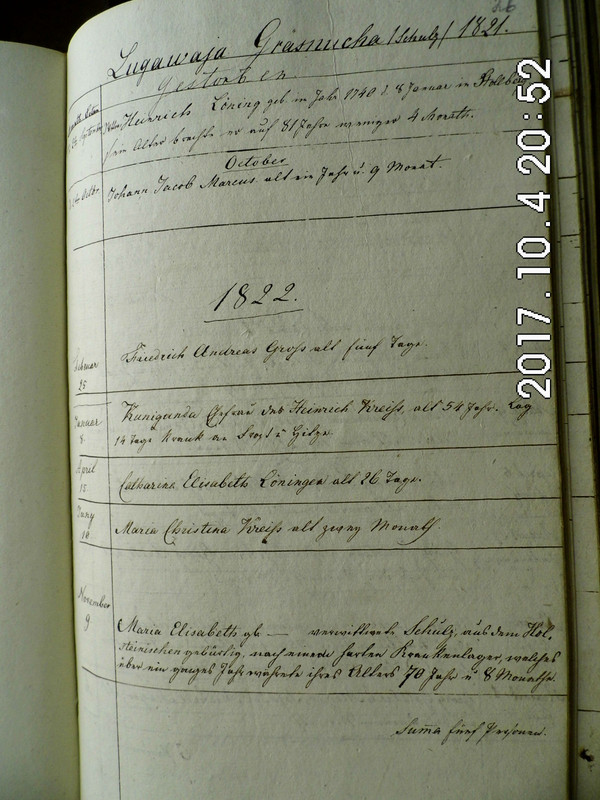 26
Lugawaja Grasnucha /Schulz/ 1821.
Gestorben.
Heinrich Löning geb. im Jahr 1740 d. 8 Januar in Stolberg
sein Alter brachte er auf 81 Jahre weniger 4 Monath.
October
Johann Jacob Marcus alt ein Jahr u. 9 Monat.
1822.
Februar
25
Friedrich Andreas Gross alt fünf Tage.
Januar
8.
Kunigunda Ehefrau des Heinrich Kreiss, alt 54 Jahr. Lag
14 Tage krank an Frost u Hitze
April
15.
Catharina Elisabeth Löningen alt 26 Tage.
Juny
16
Maria Christina Kreiss alt zwey Monath.
November
9
Maria Elisabeth gb — verwittwete Schulz, aus dem Hol-
steinischen gebürtig, nach einem harten Krankenlager, welches
über ein ganzes Jahr währete ihres Alters 70 Jahr u 8 Monathe.
Summa fünf Personen.
2017.10.4 20:52